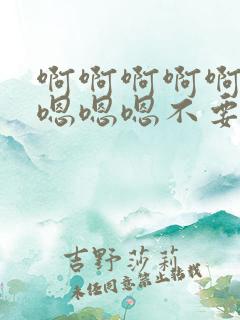 啊啊啊啊啊
嗯嗯嗯不要
吉野莎莉
未经同意禁止转载